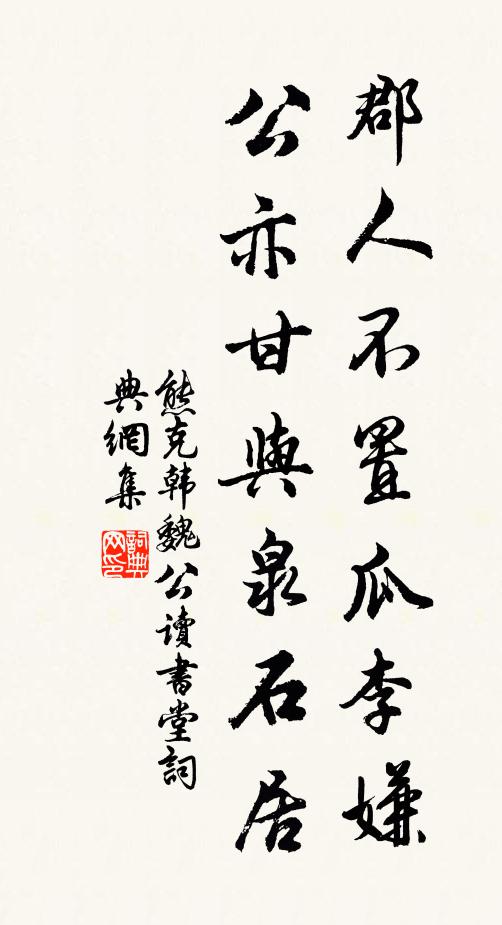 郡人不置瓜李嫌
公亦甘與泉石居
熊克韩魏公讀書堂詞
典網集
詞典网印